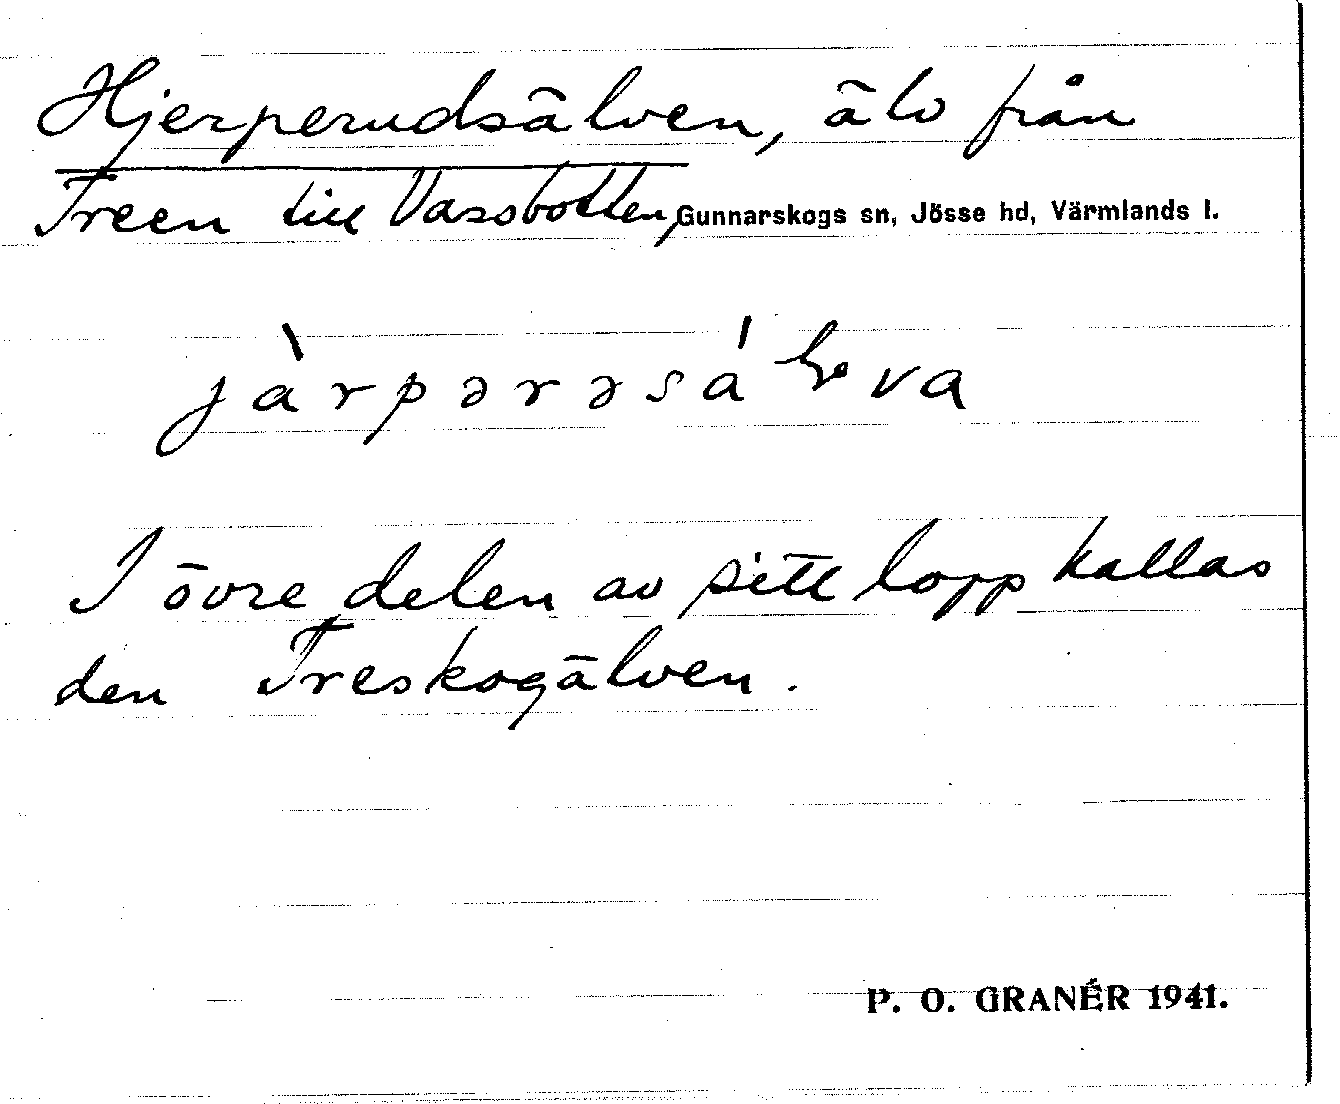 Hjerperudsälven, älv från
Treen till Vassbotten, Gunnarskogs sn, Jösse hd, Värmlands l.
jàrpərəsáɫva
I övre delen av sitt lopp kallas
den Treskogälven.
P. O. GRANÉR 1941.